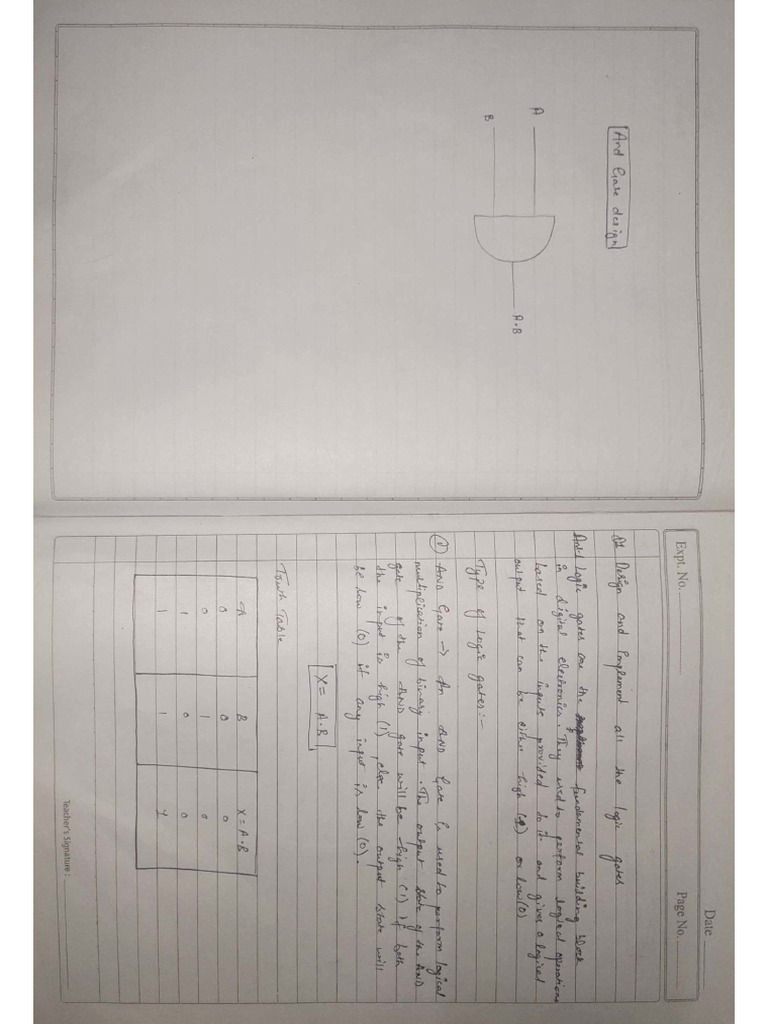 And Gate design
A
B
A.B
Date
Expt. No.
Page No.
Q1 Design and Implement all the logic gates
Ans:1 Logic gates are the fundamental building block
in digital electronics. They used to perform logical operations
based on the inputs provided to it and gives a logical
output that can be either high (1) or low (0)
Type of Logic gates:-
① AND Gate → An AND Gate is used to perform logical
multiplication of binary input. The output state of the AND
gate of the AND gate will be high (1) if both
the input is high (1) else the output state will
be low (0) if any input is low (0).
X = A.B
Truth Table
A B X = A.B
0 0 0
0 1 0
1 0 0
1 1 1
Teacher's Signature :